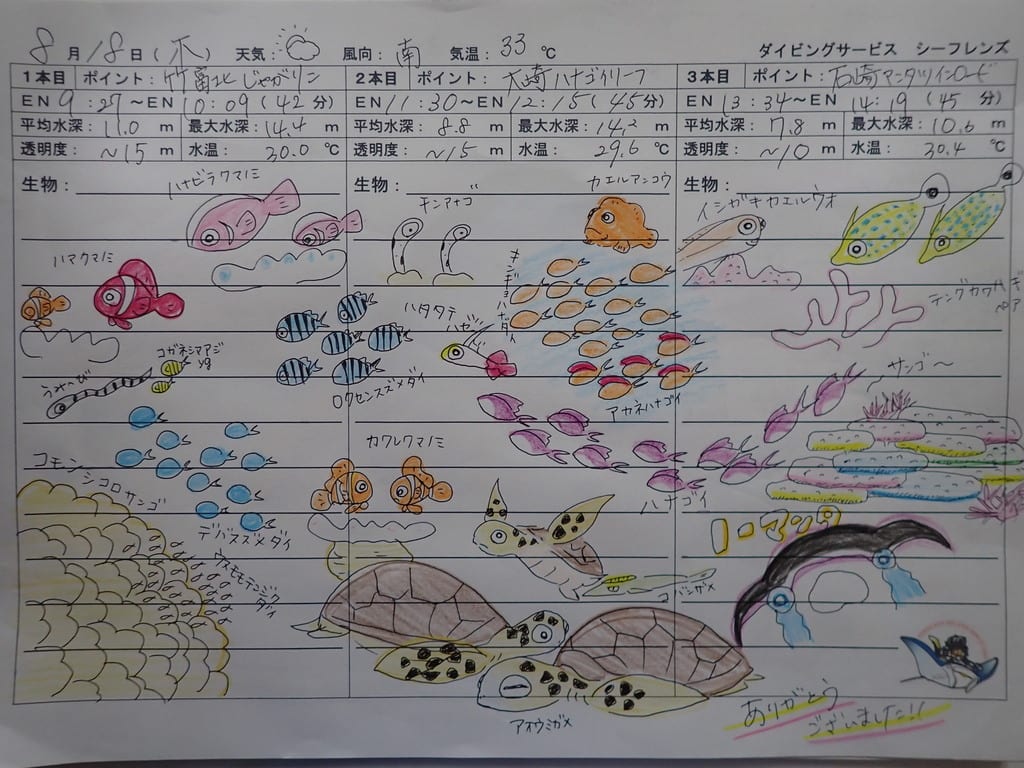 8月18日(水) 天気: 風向: 南 気温: 33℃ ダイビングサービス シーフレンズ
1本目 ポイント: 竹富北じゃがリン
EN 9:27~EN 10:09(42分)
平均水深: 11.0 m 最大水深: 14.4 m
透明度: ~15 m 水温: 30.0 ℃
生物:
ハナビラクマノミ
ハマクマノミ
コガネシマアジ yg
うみへび
コモン
シコロサンゴ
デバスズメダイ
ウスモモテンジクダイ
2本目 ポイント: 大崎ハナゴイリーフ
EN 11:30~EN 12:15(45分)
平均水深: 8.8 m 最大水深: 14.2 m
透明度: ~15 m 水温: 29.6 ℃
生物:
チンアナゴ
カエルアンコウ
キンギョハナダイ
ハタタテ
ハゼ
ロクセンスズメダイ
アカネハナゴイ
カクレクマノミ
ハナゴイ
コバンザメ
アオウミガメ
3本目 ポイント: 石崎マンタツインロード
EN 13:34~EN 14:19(45分)
平均水深: 7.8 m 最大水深: 10.6 m
透明度: ~10 m 水温: 30.4 ℃
生物:
イシガキカエルウオ
テングカワハギ
ペア
~サンゴ~
ノーマンタ
ありがとう
ございました!!